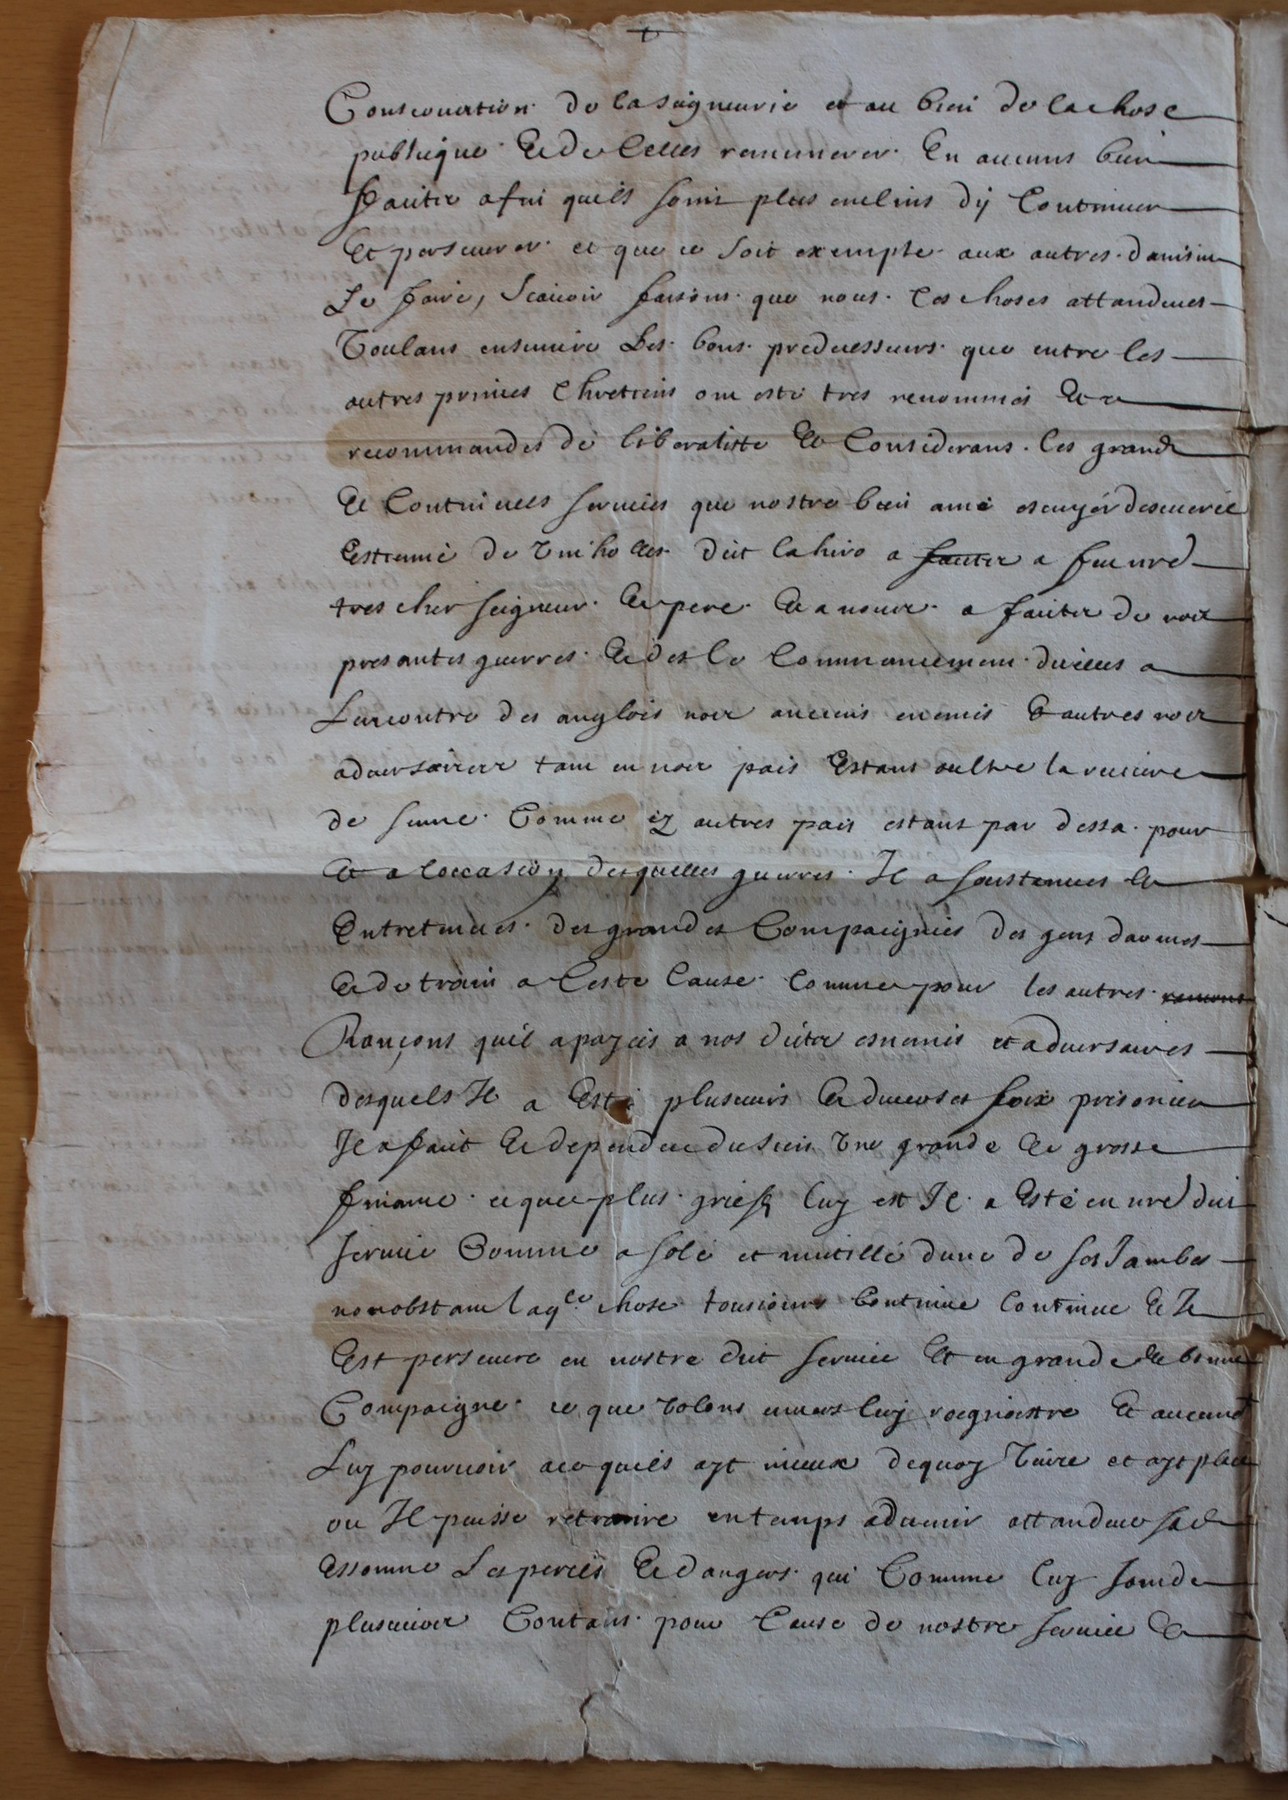 Conseruation de la seigneurie et au bien de la chose
publique Et de Celles remunerer En aucuns bien
faictz afin quils soint plus enclins dy Continuer
Et perseuerer et que ce soit exemple aux autres dainsin
Le faire, Scauoir faisons que nous Ces choses attandues
Voulans ensuiure Les bons predecesseurs que entre les
autres princes Chretiens ont esté tres renommés Et
recommandes de liberalitte Et Considerans les grands
Et Continuels seruices que nostre bien amé escuyer descuerie
Estienne de Vinholles dit lahire a faictz a feu nre
tres cher seigneur Et pere Et a nous a faictz de noz
presantes guerres Et des le Commancement dicelles a
Lancontre des anglois noz anciens enemis Et autres noz
aduersaires tant en noz pais Estans oultre la riuiere
de seine Comme ez autres pais estans par dessa pour
Et a loccasion desquelles guerres Il a soustenues Et
Entretenues des grandes Compaignies des gens darmes
Et de train a Ceste Cause Comme pour les autres
Rançons quil a payées a nos dictz ennemis et aduersaires
desquels Il a Esté plusieurs Et diuerses foix prisonier
Il a fait Et dependeu du sien Vne grande Et grosse
finance et que plus grief luy est Il a Esté en nre dit
seruice Comme a folé et mutillé dune de ses Jambes
nonobstant laqle chose tousiours Continué Continue Et Il
Est perseuere en nostre dit seruice Et en grande Et bonne
Compaigne ce que Volons enuers luy recgnoistre Et aucunet
Luy pouruoir aco quils ayt mieux de quoy Viure et ayt place
ou Il puisse retraire en temps aduenir attandeu sa
Essonne Les perils Et dangers qui Comme luy sont de
plusieurs Contans pour Cause de nostre seruice Et